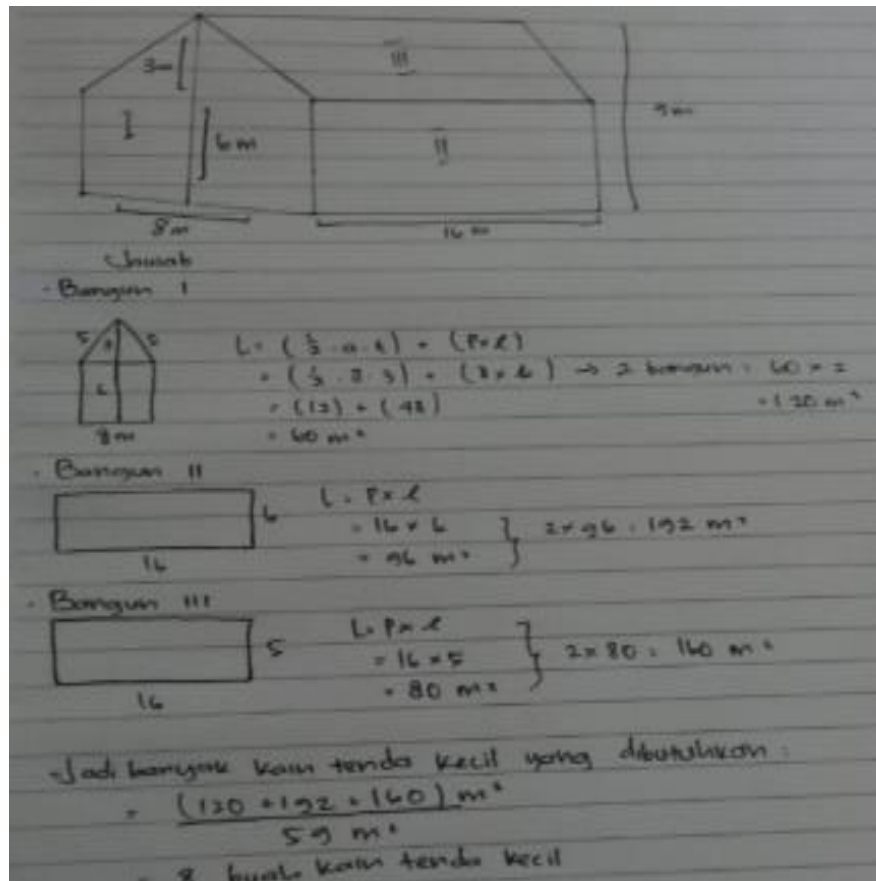 3m
III
I
6 m
II
9 m
8 m
16 m
Jawab
- Bangun I
5 3 5
6
8 m
L = (1/2 . a . t) + (P x l)
= (1/2 . 8 . 3) + (8 x 6) → 2 bangun = 60 x 2
= (12) + (48) = 120 m²
= 60 m²
- Bangun II
6
16
L = P x l
= 16 x 6
= 96 m²
2 x 96 = 192 m²
- Bangun III
5
16
L = P x l
= 16 x 5
= 80 m²
2 x 80 = 160 m²
Jadi banyak kain tenda kecil yang dibutuhkan :
= (120 + 192 + 160) m²
59 m²
= 8 buah kain tenda kecil